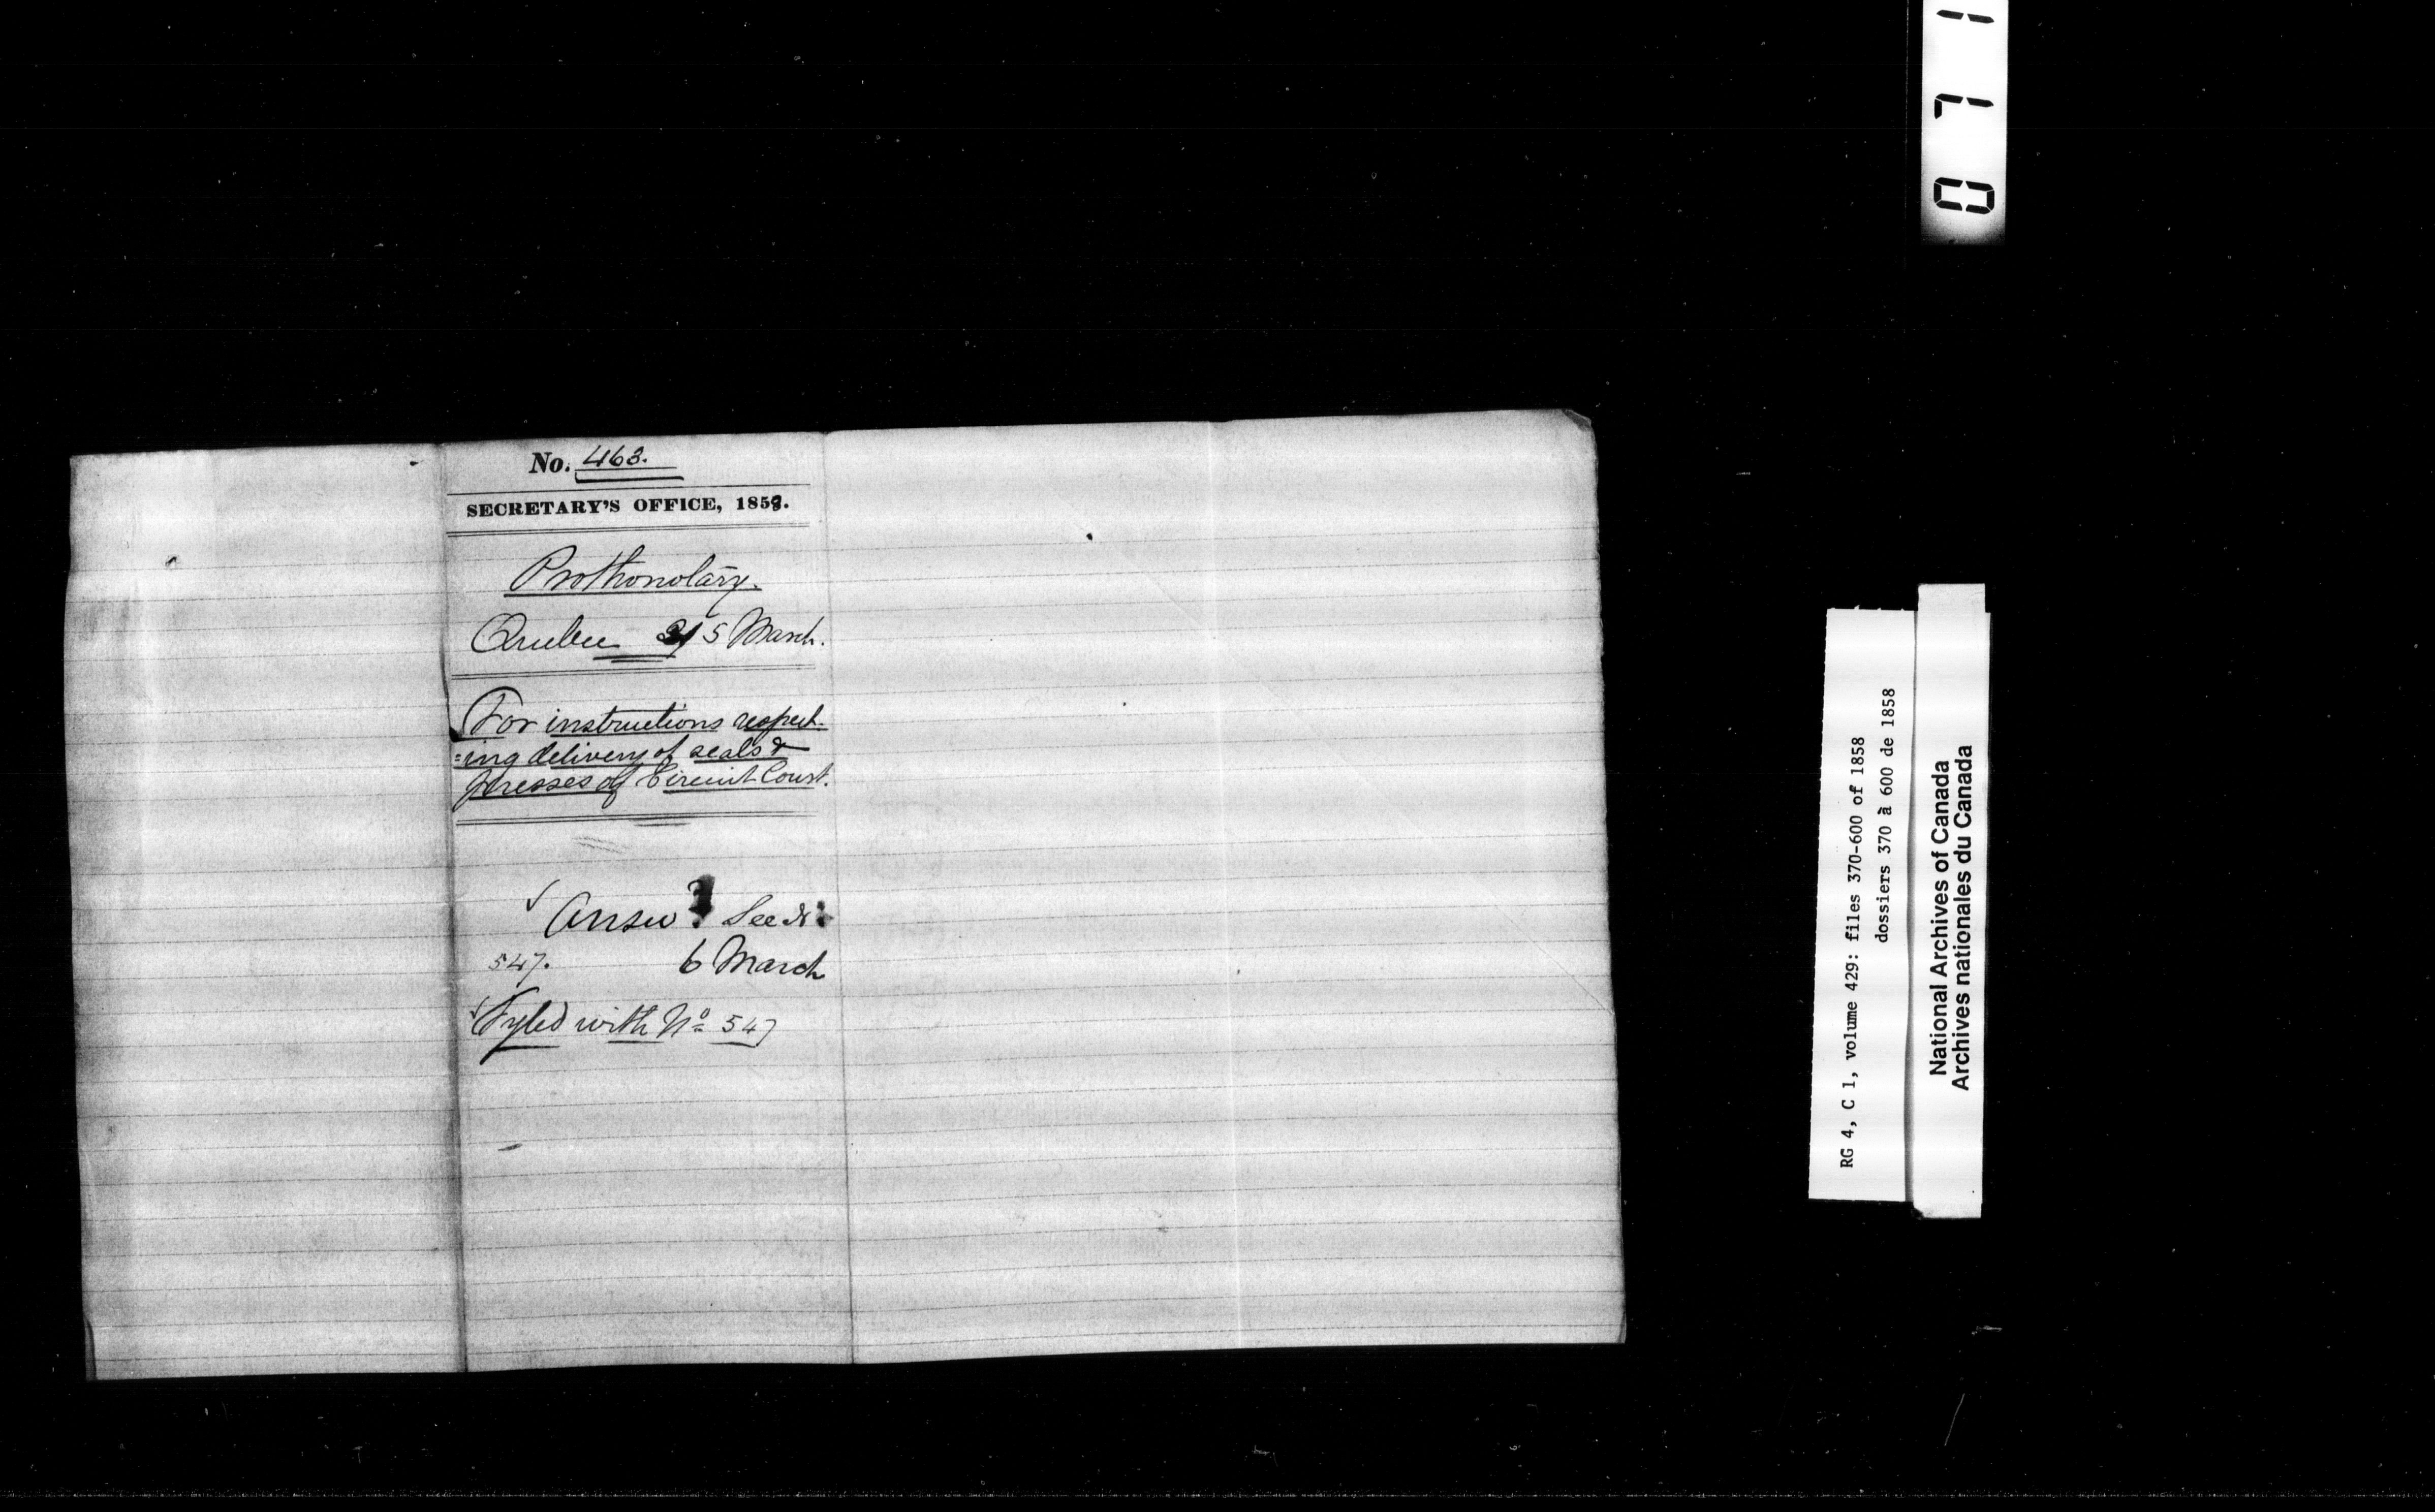 No. 463.
SECRETARY'S OFFICE, 1858.
Prothonotary.
Quebec 5 March.
For instructions respect-
=ing delivery of seals &
presses of Circuit Court.
Answd See No
547. 6 March
Fyled with No 547
0 7 1
RG 4, C 1, volume 429: files 370-600 of 1858
dossiers 370 à 600 de 1858
National Archives of Canada
Archives nationales du Canada